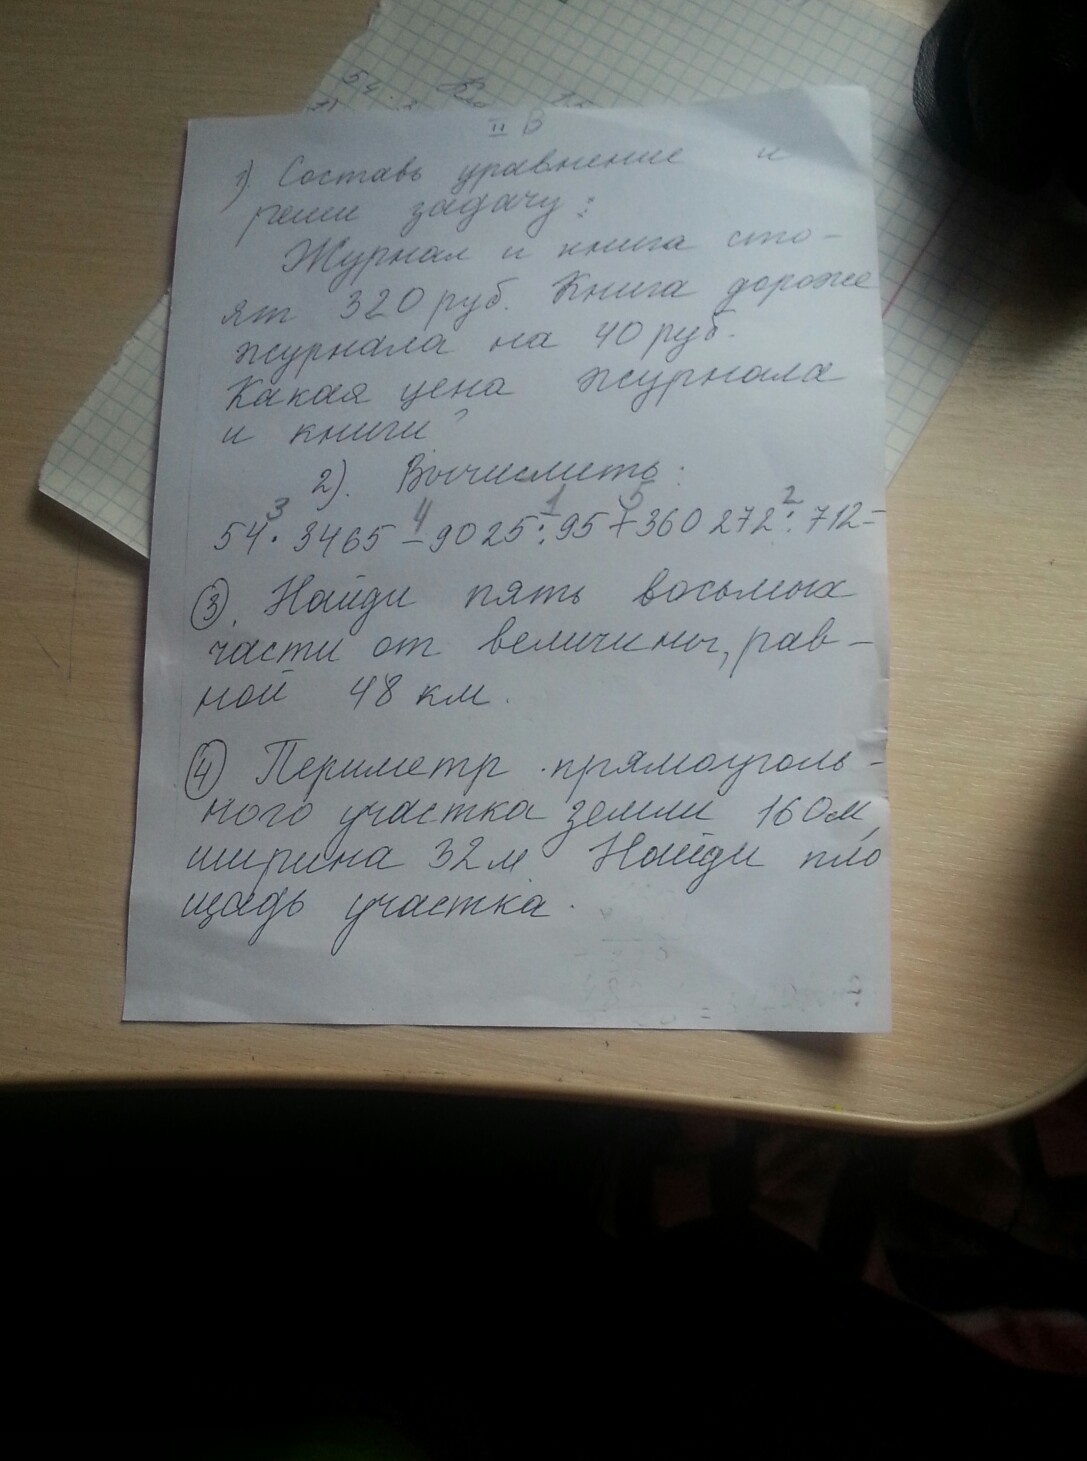 54 · 3
II В
1) Составь уравнение и
реши задачу:
Журнал и книга сто-
ят 320 руб. Книга дороже
журнала на 40 руб.
Какая цена журнала
и книги?
2). Вычислить:
3 4 1 5 2
54 · 3465 - 9025 : 95 + 360 272 : 712 =
3. Найди пять восьмых
части от величины, рав-
ной 48 км.
4 Периметр прямоуголь-
ного участка земли 160м,
ширина 32м. Найди пло
щадь участка.